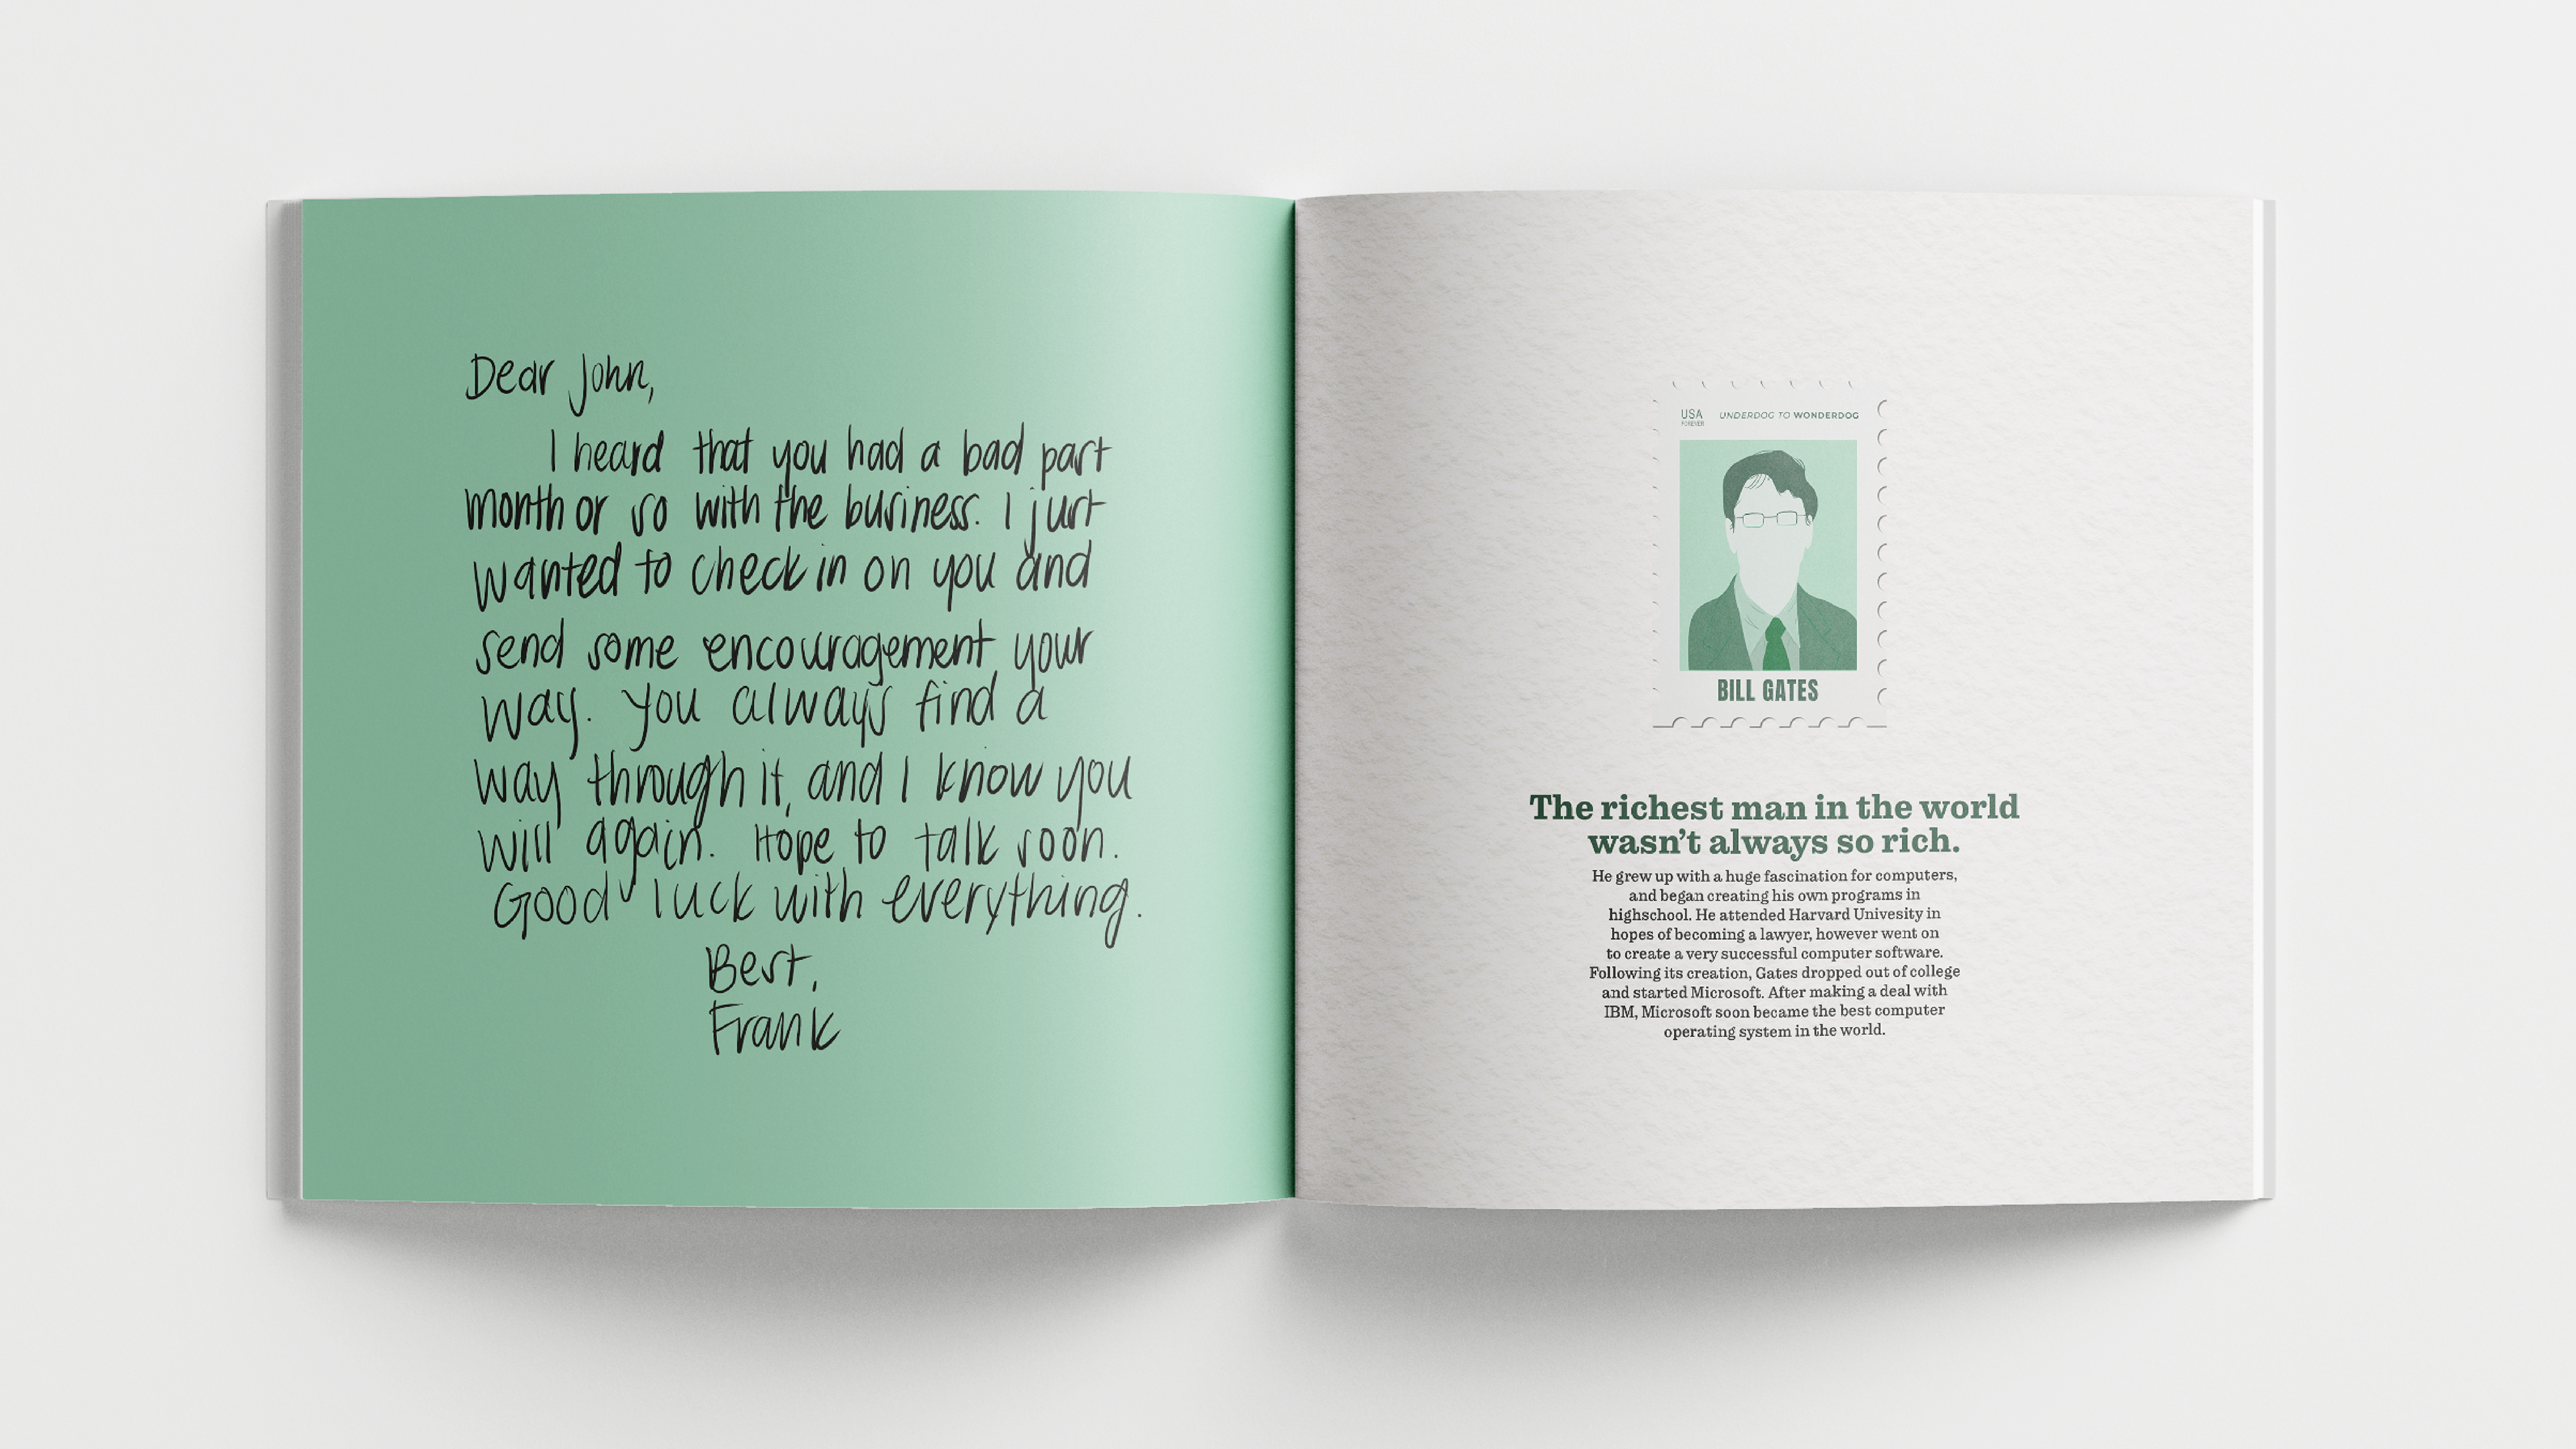 Dear John,
I heard that you had a bad part
month or so with the business. I just
wanted to check in on you and
send some encouragement your
way. You always find a
way through it, and I know you
will again. Hope to talk soon.
Good luck with everything.
Best,
Frank
USA
FOREVER
UNDERDOG TO WONDERDOG
BILL GATES
The richest man in the world
wasn't always so rich.
He grew up with a huge fascination for computers,
and began creating his own programs in
highschool. He attended Harvard Univesity in
hopes of becoming a lawyer, however went on
to create a very successful computer software.
Following its creation, Gates dropped out of college
and started Microsoft. After making a deal with
IBM, Microsoft soon became the best computer
operating system in the world.